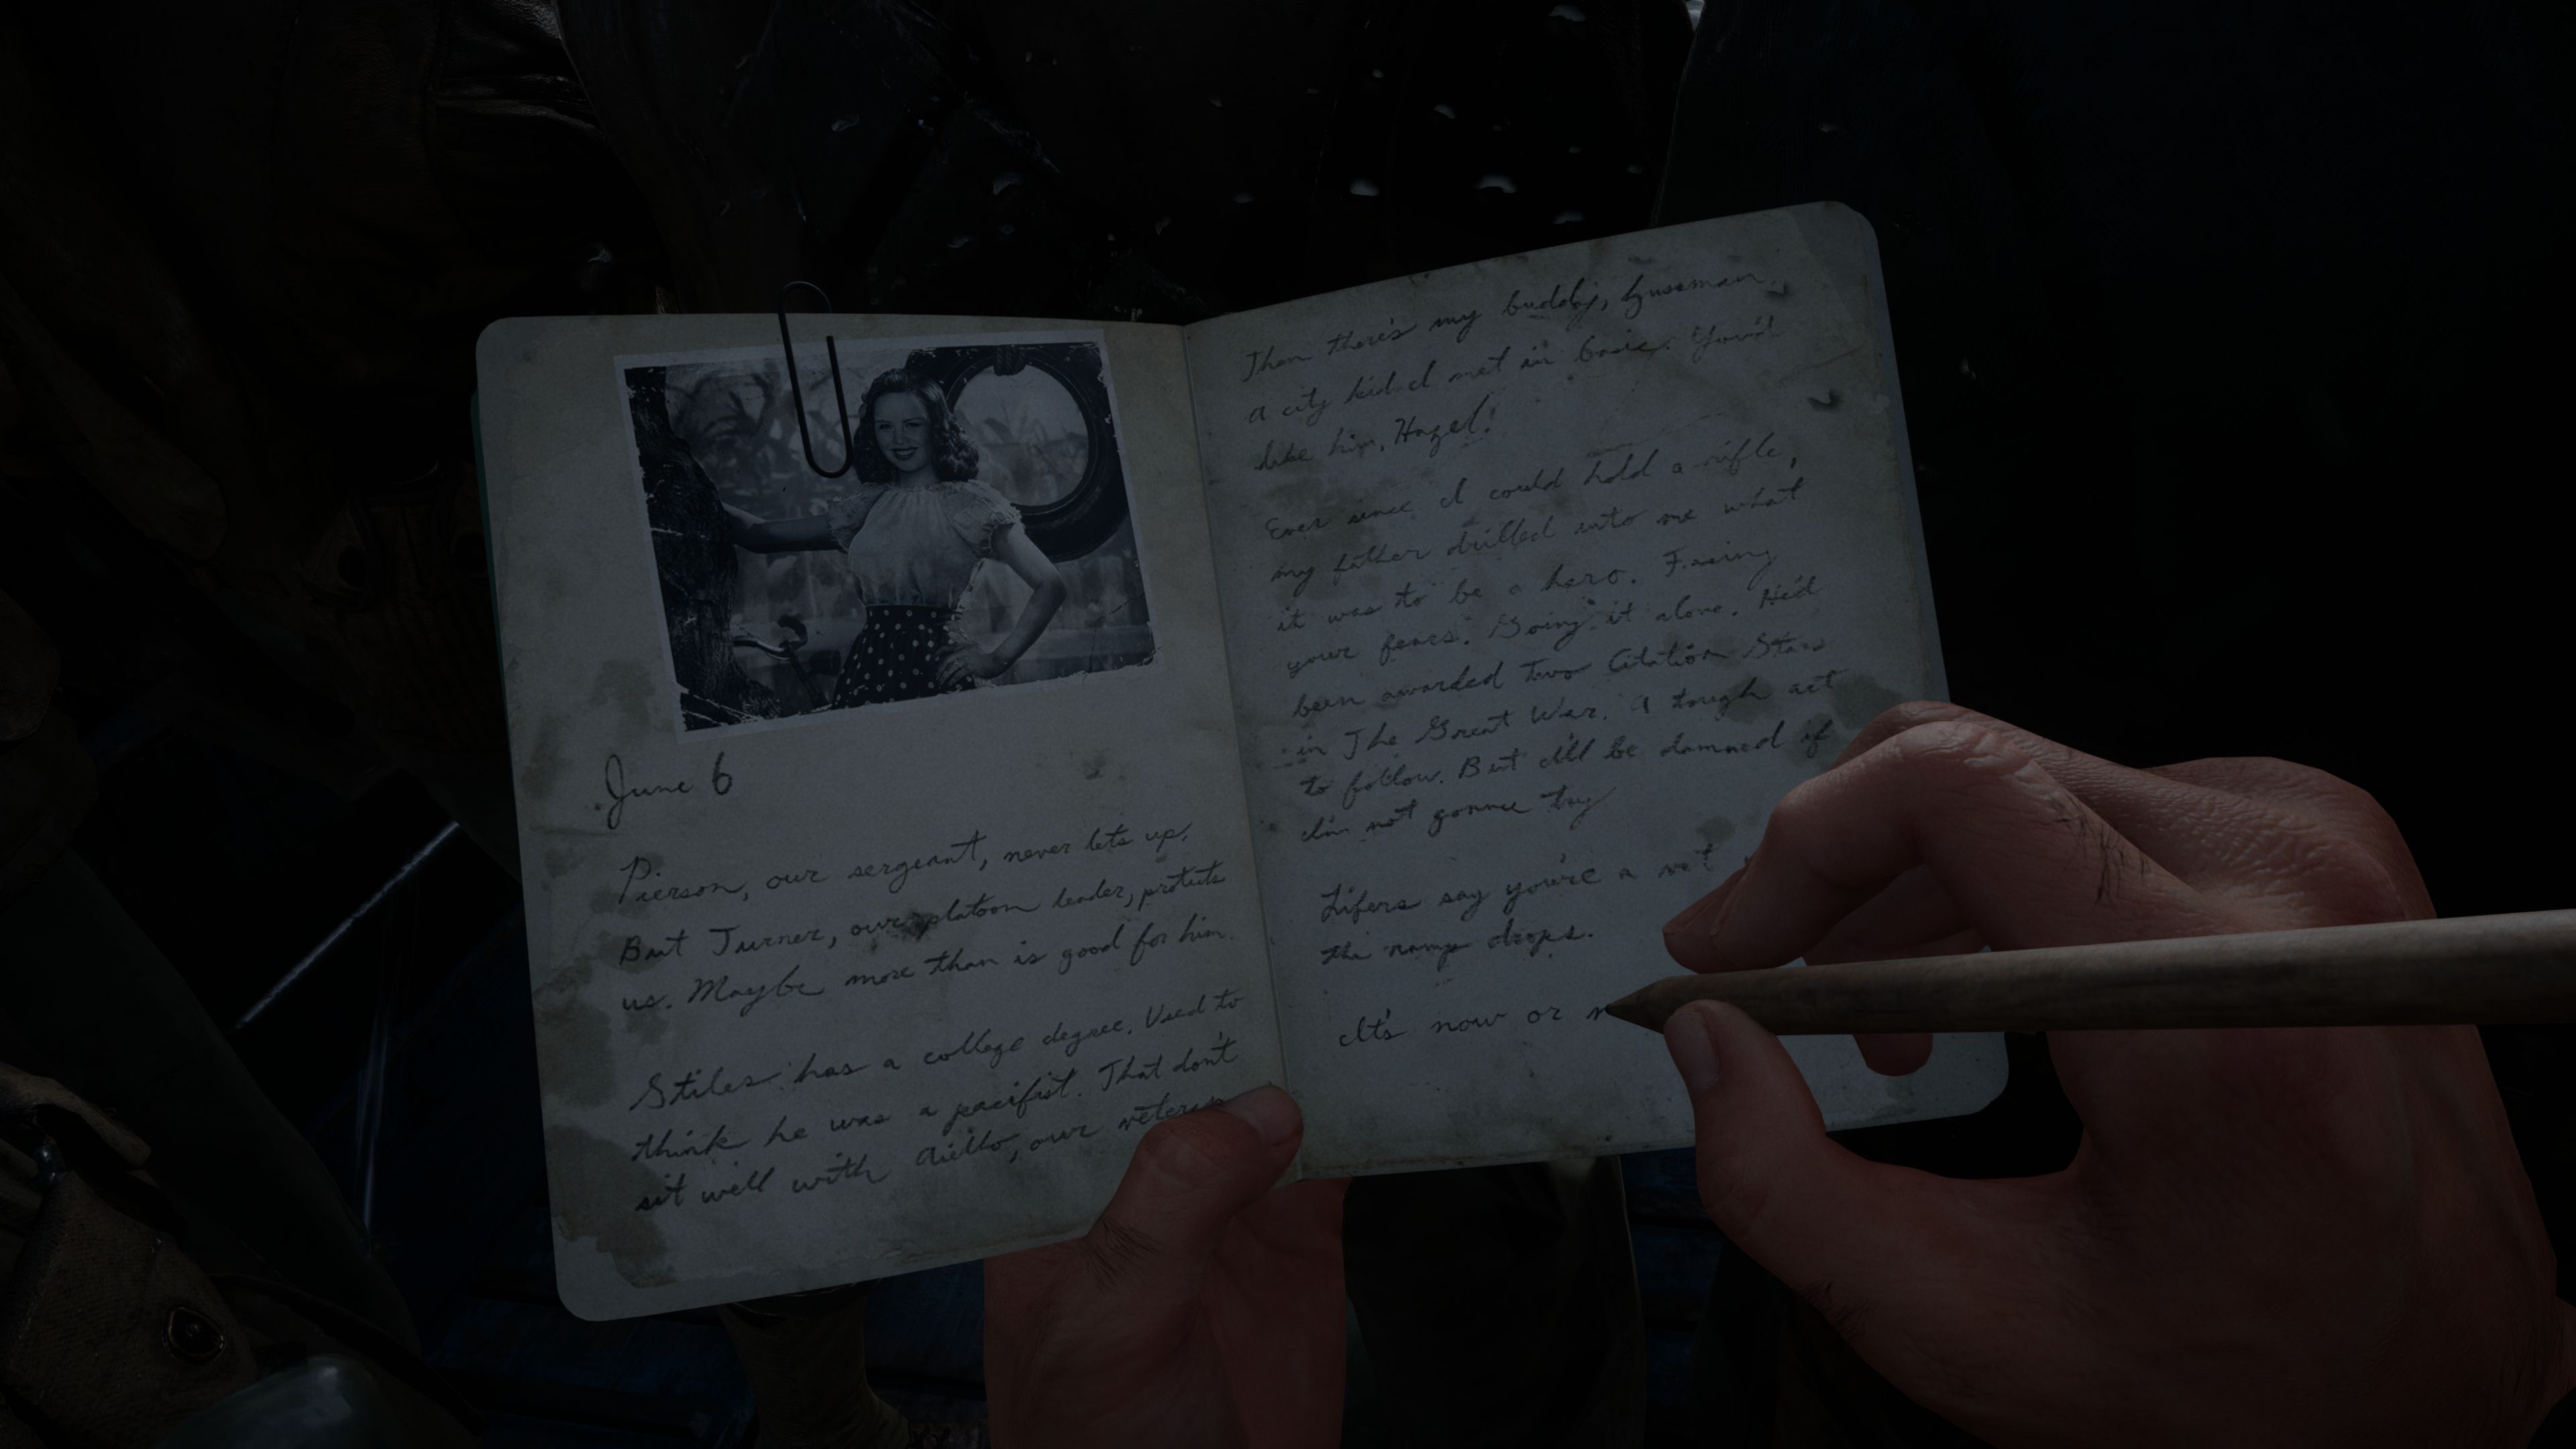 June 6
Pierson, our sergeant, never lets up.
But Turner, our platoon leader, protects
us. Maybe more than is good for him.
Stiles has a college degree. Used to
think he was a pacifist. That don't
sit well with Aiello, our veteran
Then there's my buddy, Zussman,
a city kid I met in basic. You'd
like him, Hazel!
Ever since I could hold a rifle,
my father drilled into me what
it was to be a hero. Facing
your fears. Going it alone. He'd
been awarded two Citation Stars
in The Great War. A tough act
to follow. But I'll be damned if
I'm not gonna try
Lifers say you're a vet
the ramp drops.
It's now or n